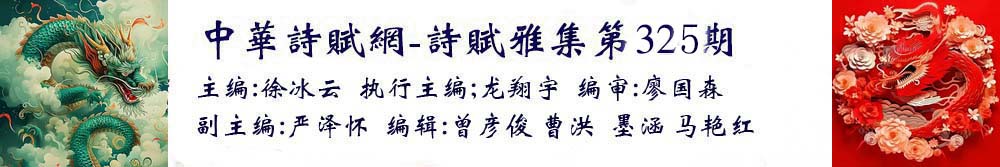 中華詩賦網-詩賦雅集第325期
主编:徐冰云 执行主编;龙翔宇 编审:廖国森
副主编:严泽怀 编辑:曾彦俊 曹洪 墨涵 马艳红